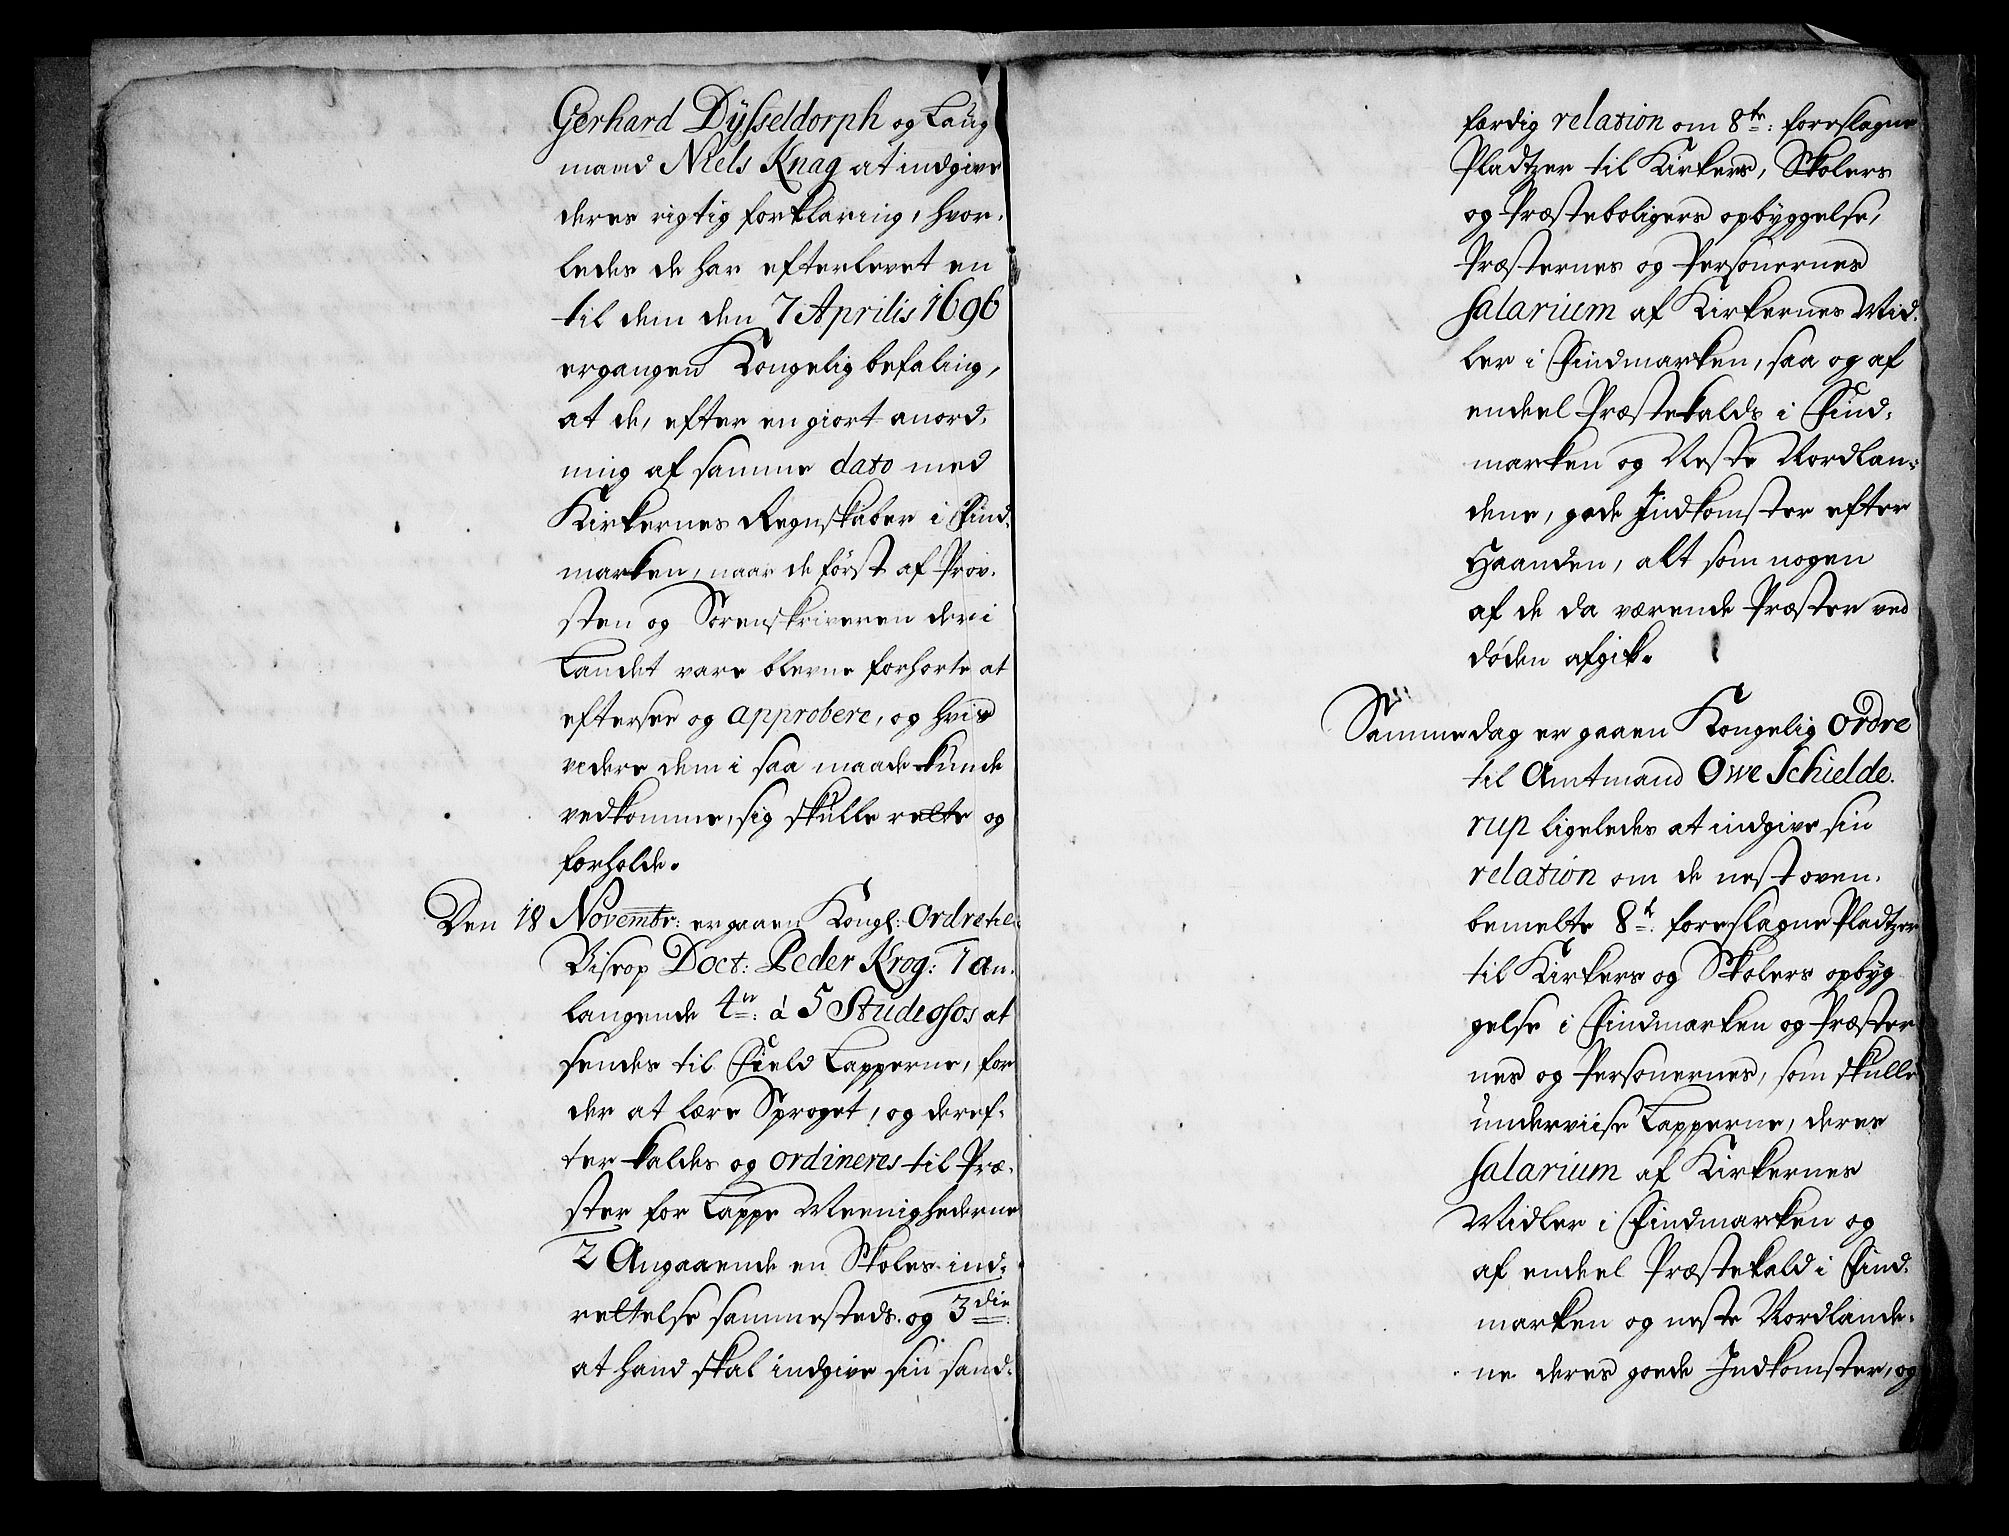 Gerhard Dÿsseldorph og Laug
mand Niels Knag at indgive
deres rigtig forklaring, hvor-
ledes de har efterlevet en
til dem den 7 Aprilis 1696
ergangen Kongelig befaling,
at de, efter en giort anord-
ning af samme dato med
Kirkernes Regnskaber i Find-
marken, naar de først af Prov-
sten og Sorenskriveren der i
Landet vare blevne forhorte at
eftersee og approbere, og hvis
videre dem i saa maade kunde
vedkomme, sig skulle rette og
forholde.
Den 18 Novembr: er gaaen Kongl: Ordre til
Biscop Doct: Peder Krog: 1 an-
langende 4re: à 5 Studiosos at
sendes til Field Lapperne, for
der at lære Sproget, og deref-
ter kaldes og ordineres til Præ-
ster for Lappe Meenighederne
2 Angaaende en Skoles ind-
rettelse sammesteds. og 3die
at hand skal indgive sin sand-
færdig relation om 8te: foreslagne
Pladtzer til Kirkers, Skolers
og Præsteboligers opbyggelse,
Præsternes og Personernes
Salarium af Kirkernes Mid-
ler i Findmarken, saa og af
endeel Præstekalds i Find-
marken og Neste Nordlan-
dene, gode Indkomster efter
Haanden, alt som nogen
af de da værende Præster ved
døden afgik.
Samme dag er gaaen Kongelig Ordre
til Amtmand Owe Schielde-
rup ligeledes at indgive sin
relation om de nest oven-
bemelte 8te: foreslagne Pladtzer
til Kirkers og Skolers opbyg
gelse i Findmarken og Præster
nes og Personernes, som skulle
underviise Lapperne, deres
Salarium af Kirkernes
Midler i Findmarken og
af endeel Præstekald i Find-
marken og neste Nordlande-
ne deres goede Indkomster, og